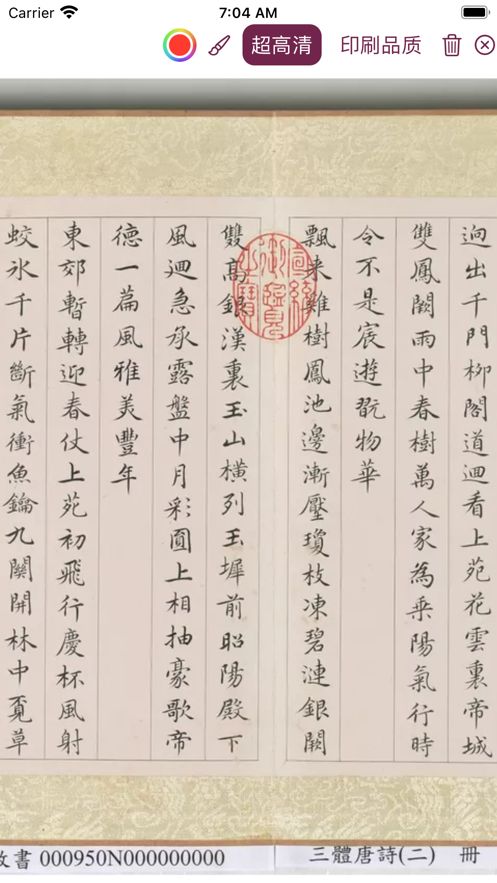 Carrier 7:04 AM
超高清 印刷品质
逈出千門柳閣道迴看上苑花雲裏帝城
雙鳳闕雨中春樹萬人家為乘陽氣行時
令不是宸遊翫物華
飄来雞樹鳳池邊漸壓瓊枝凍碧漣銀闕
雙高銀漢裏玉山橫列玉墀前昭陽殿下
風迴急承露盤中月彩圓上相抽豪歌帝
德一篇風雅美豐年
東郊暫轉迎春仗上苑初飛行慶杯風射
蛟氷千片斷氣衝魚鑰九關開林中覓草
宣統御覽之寶
故書 000950N000000000
三體唐詩(二) 冊